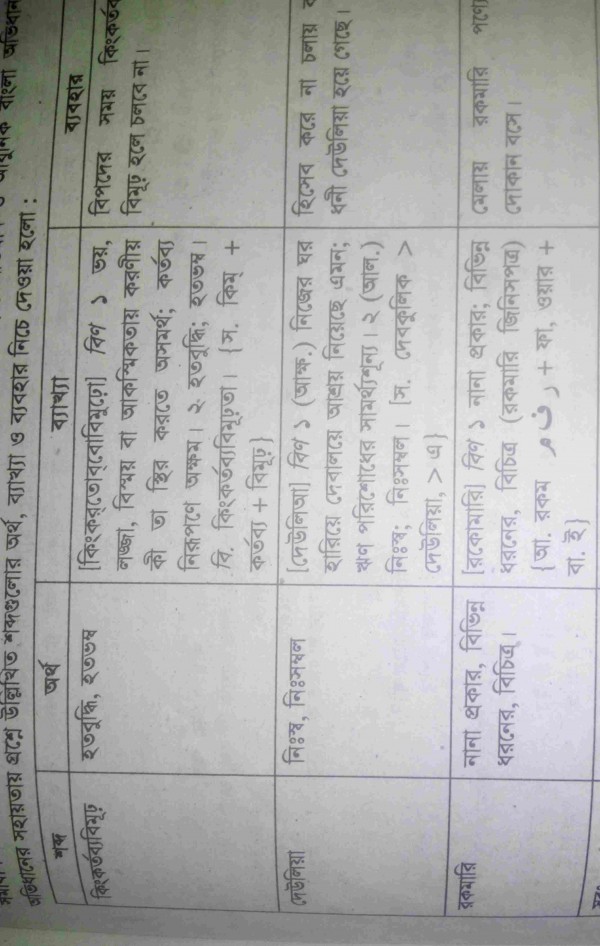 আধুনিক বাংলা অভিধান
অভিধানের সহায়তায় প্রশ্নে উল্লিখিত শব্দগুলোর অর্থ, ব্যাখ্যা ও ব্যবহার নিচে দেওয়া হলো :
শব্দ অর্থ ব্যাখ্যা ব্যবহার
কিংকর্তব্যবিমূঢ়
হতবুদ্ধি, হতভম্ব
[কিংকর্‌তোব্‌বোবিমূঢ়ো] বিণ ১ ভয়,
লজ্জা, বিস্ময় বা আকস্মিকতায় করণীয়
কী তা স্থির করতে অসমর্থ; কর্তব্য
নিরূপণে অক্ষম। ২ হতবুদ্ধি; হতভম্ব।
বি. কিংকর্তব্যবিমূঢ়তা। {স. কিম্ +
কর্তব্য + বিমূঢ়}
বিপদের সময় কিংকর্তব্য
বিমূঢ় হলে চলবে না।
দেউলিয়া
নিঃস্ব, নিঃসম্বল
[দেউলিআ] বিণ ১ (আক্ষ.) নিজের ঘর
হারিয়ে দেবালয়ে আশ্রয় নিয়েছে এমন;
ঋণ পরিশোধের সামর্থ্যশূন্য। ২ (আল.)
নিঃস্ব; নিঃসম্বল। [স. দেবকুলিক >
দেউলিয়া, > এ}
হিসেব করে না চলায়
ধনী দেউলিয়া হয়ে গেছে।
রকমারি
নানা প্রকার, বিভিন্ন
ধরনের, বিচিত্র।
[রকোমারি] বিণ ১ নানা প্রকার; বিভিন্ন
ধরনের, বিচিত্র (রকমারি জিনিসপত্র)
{আ. রকম + ফা, ওয়ার +
বা. ই}
মেলায় রকমারি পণ্যে
দোকান বসে।